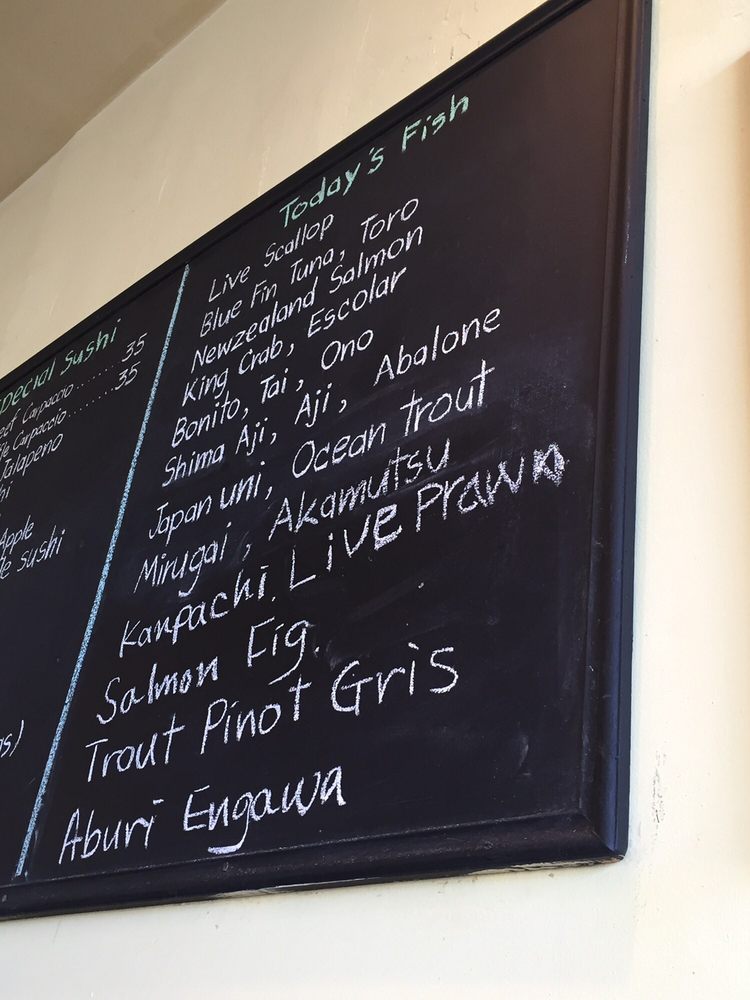 Special Sushi
Beef Carpaccio ........ 35
Carpaccio ........ 35
Jalapeno
Apple
sushi
Today's Fish
Live Scallop
Blue Fin Tuna, Toro
Newzealand Salmon
King Crab, Escolar
Bonito, Tai, Ono
Shima Aji, Aji, Abalone
Japan uni, Ocean trout
Mirugai, Akamutsu
Kanpachi. Live Prawn
Salmon Fig.
Trout Pinot Gris
Aburi Engawa